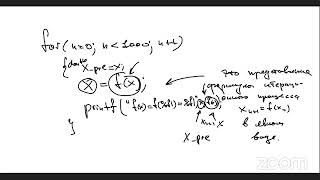 for(n=0; n<1000; n++)
{double x_pre=x;
x = f(x);
printf("f(x)=f(%f)=%f", x, f(x));
}
это представление
формулы итерацион-
ного процесса
x_{n+1}=f(x_n)
в явном
виде.
x_{n+1} x
x_pre
zoom